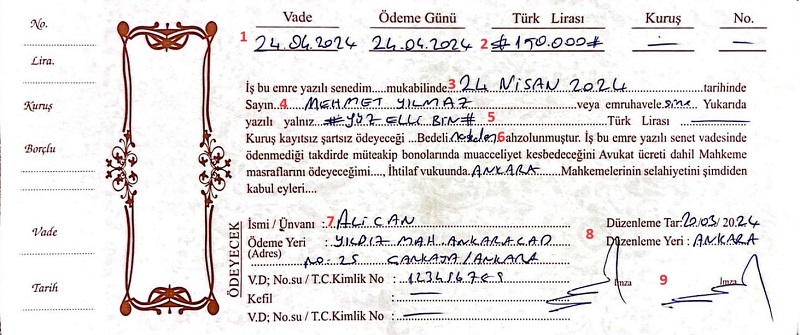 No.
Lira.
Kuruş
Borçlu
Vade
Tarih
Vade Ödeme Günü Türk Lirası Kuruş No.
1 24.04.2024 24.04.2024 2 #150.000# — —
İş bu emre yazılı senedim.....mukabilinde 3 24 NİSAN 2024 tarihinde
Sayın. 4 MEHMET YILMAZ veya emruhavele.sine Yukarıda
yazılı yalnız #YÜZ ELLİ BİN# 5 Türk Lirası —
Kuruş kayıtsız şartsız ödeyeceği ...Bedeli nakden 6 ahzolunmuştur. İş bu emre yazılı senet vadesinde
ödenmediği takdirde müteakip bonolarında muacceliyet kesbedeceğini Avukat ücreti dahil Mahkeme
masraflarını ödeyeceğimi...., İhtilaf vukuunda ANKARA Mahkemelerinin selahiyetini şimdiden
kabul eyleri....
ÖDEYECEK
İsmi / Ünvanı : 7 ALİ CAN
Ödeme Yeri : YILDIZ MAH. ANKARA CAD
(Adres) NO: 25 ÇANKAYA/ANKARA
V.D; No.su / T.C.Kimlik No :
Kefil : —
V.D; No.su / T.C.Kimlik No : —
8
Düzenleme Tar: 20/03/ 20.24
Düzenleme Yeri : ANKARA
İmza 9 İmza